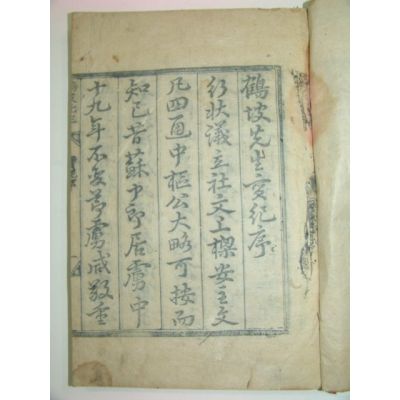 鶴坡先生實紀序
行狀議立社文上樑安主文
凡四通中樞公大略可按而
知已昔蘇中郎居虜中
十九年不失節虜咸敬重